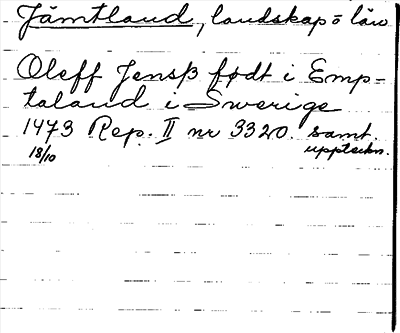 Jämtland, landskap o län
Oleff Jensß födt i Emp-
taland i Swerige
1473 Rep. II nr 3320. samt.
18/10 uppteckn.